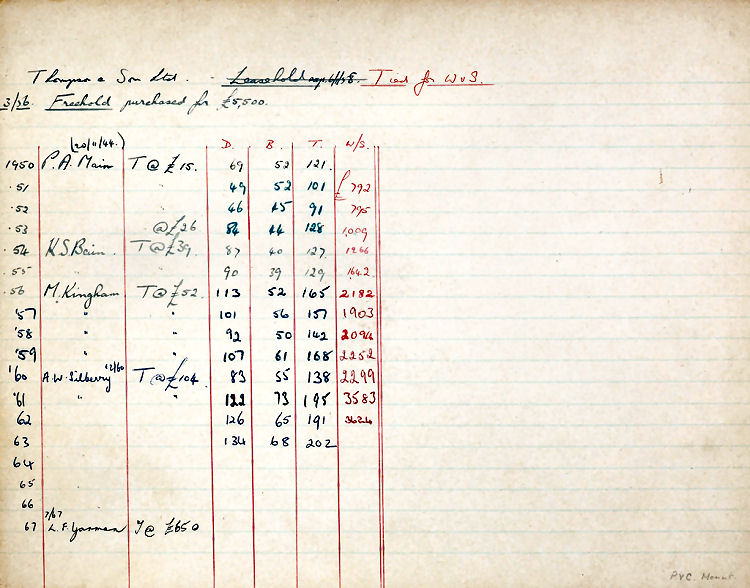 Thompson & Son Ltd. - Leasehold exp. 6/1/38. Tied for W & S.
3/36. Freehold purchased for £5,500.
(20/11/44.) D. B. T. W/S.
1950 P. A. Main T @ £15. 69 52 121.
.51 49 52 101 £792
.52 46 45 91 795
.53 @ £26 84 44 128 1,009
.54 K.S. Bain. T @ £39. 87 40 127. 1266
.55 " 90 39 129 1642
.56 M. Kingham T @ £52. 113 52 165 2182
'57 " " 101 56 157 1903
'58 " " 92 50 142 2094
'59 " " 107 61 168 2252
'60 A.W. Silberry 12/60 T @ £104. 83 55 138 2299
'61 " " 122 73 195 3583
62 126 65 191 3624
63 134 68 202
64
65
66
7/67
67 L. F. Yarman T @ £650
PVC.